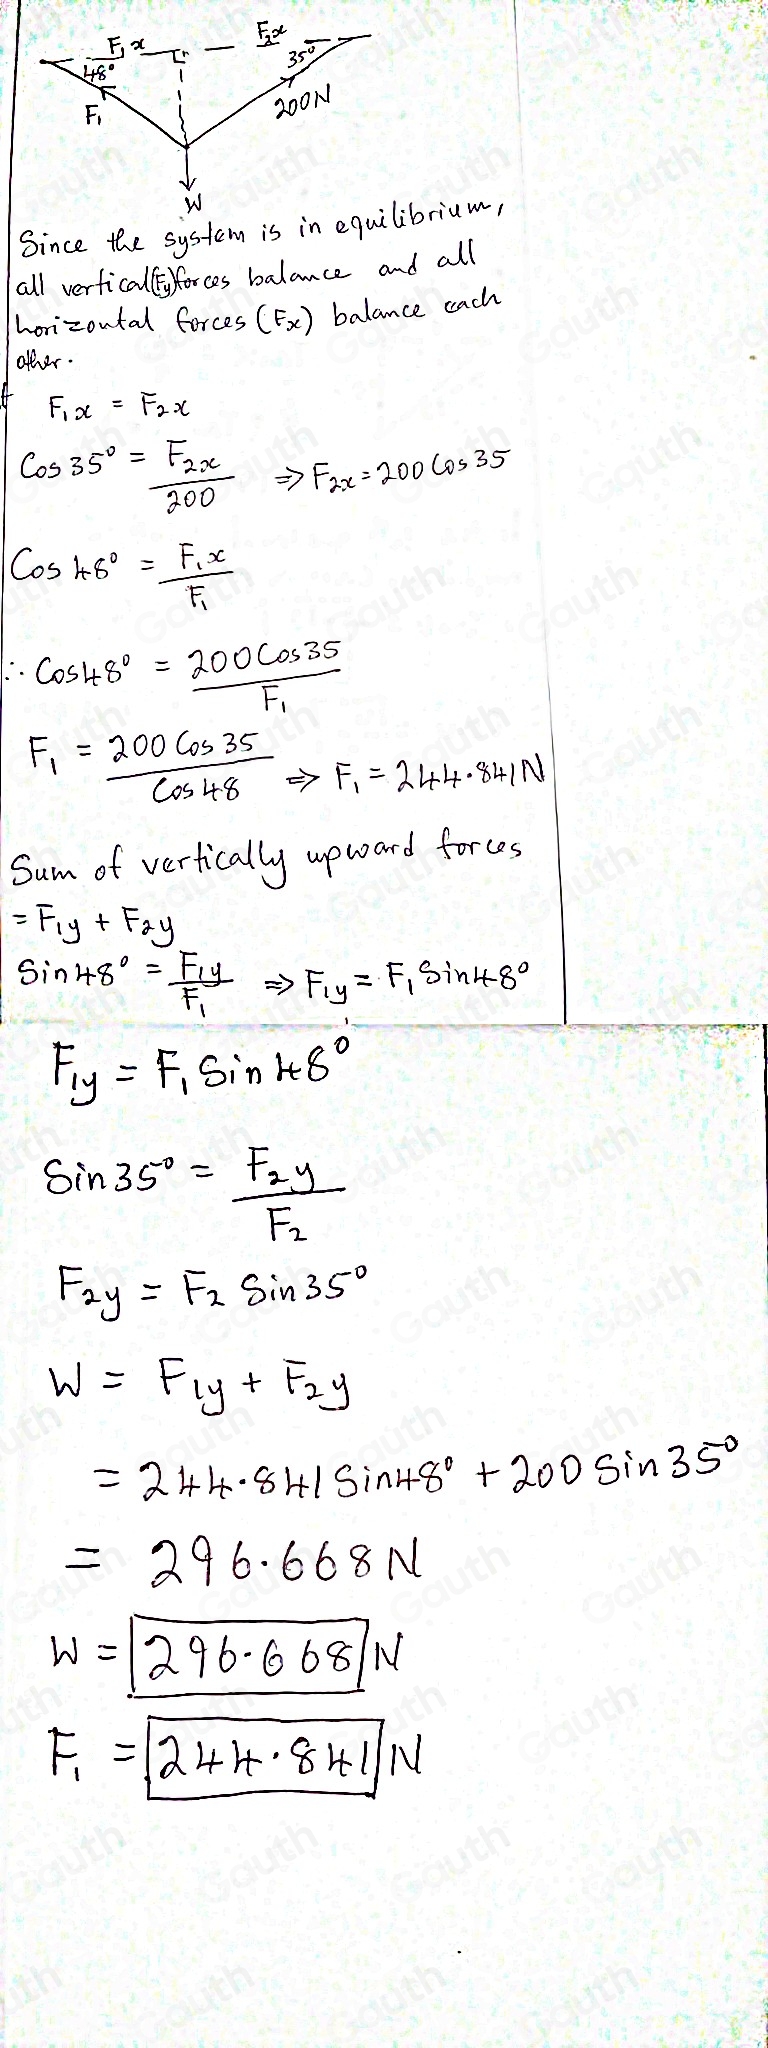 F₁x F₂x
48° 35°
F₁ 200N
W
Since the system is in equilibrium,
all vertical(Fy)forces balance and all
horizontal forces (Fx) balance each
other.
F₁x = F₂x
Cos 35° = F₂x / 200 ⇒ F₂x = 200 Cos 35
Cos 48° = F₁x / F₁
∴ Cos48° = 200 Cos 35 / F₁
F₁ = 200 Cos 35 / Cos 48 ⇒ F₁ = 244.841N
Sum of vertically upward forces
= F₁y + F₂y
Sin48° = F₁y / F₁ ⇒ F₁y = F₁ Sin48°
F₁y = F₁ Sin 48°
Sin35° = F₂y / F₂
F₂y = F₂ Sin35°
W = F₁y + F₂y
= 244.841 Sin48° + 200 Sin 35°
= 296.668N
W = 296.668 N
F₁ = 244.841 N